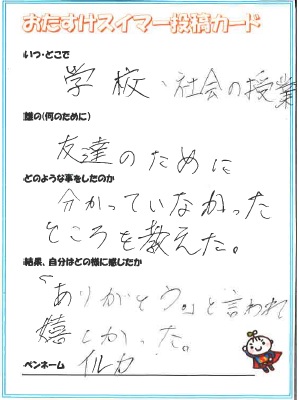 おたすけスイマー投稿カード
いつ・どこで
学校、社会の授業
誰の(何のために)
友達のために
どのような事をしたのか
分かっていなかった
ところを教えた。
結果、自分はどの様に感じたか
「ありがとう。」と言われ
嬉しかった。
ペンネーム イルカ